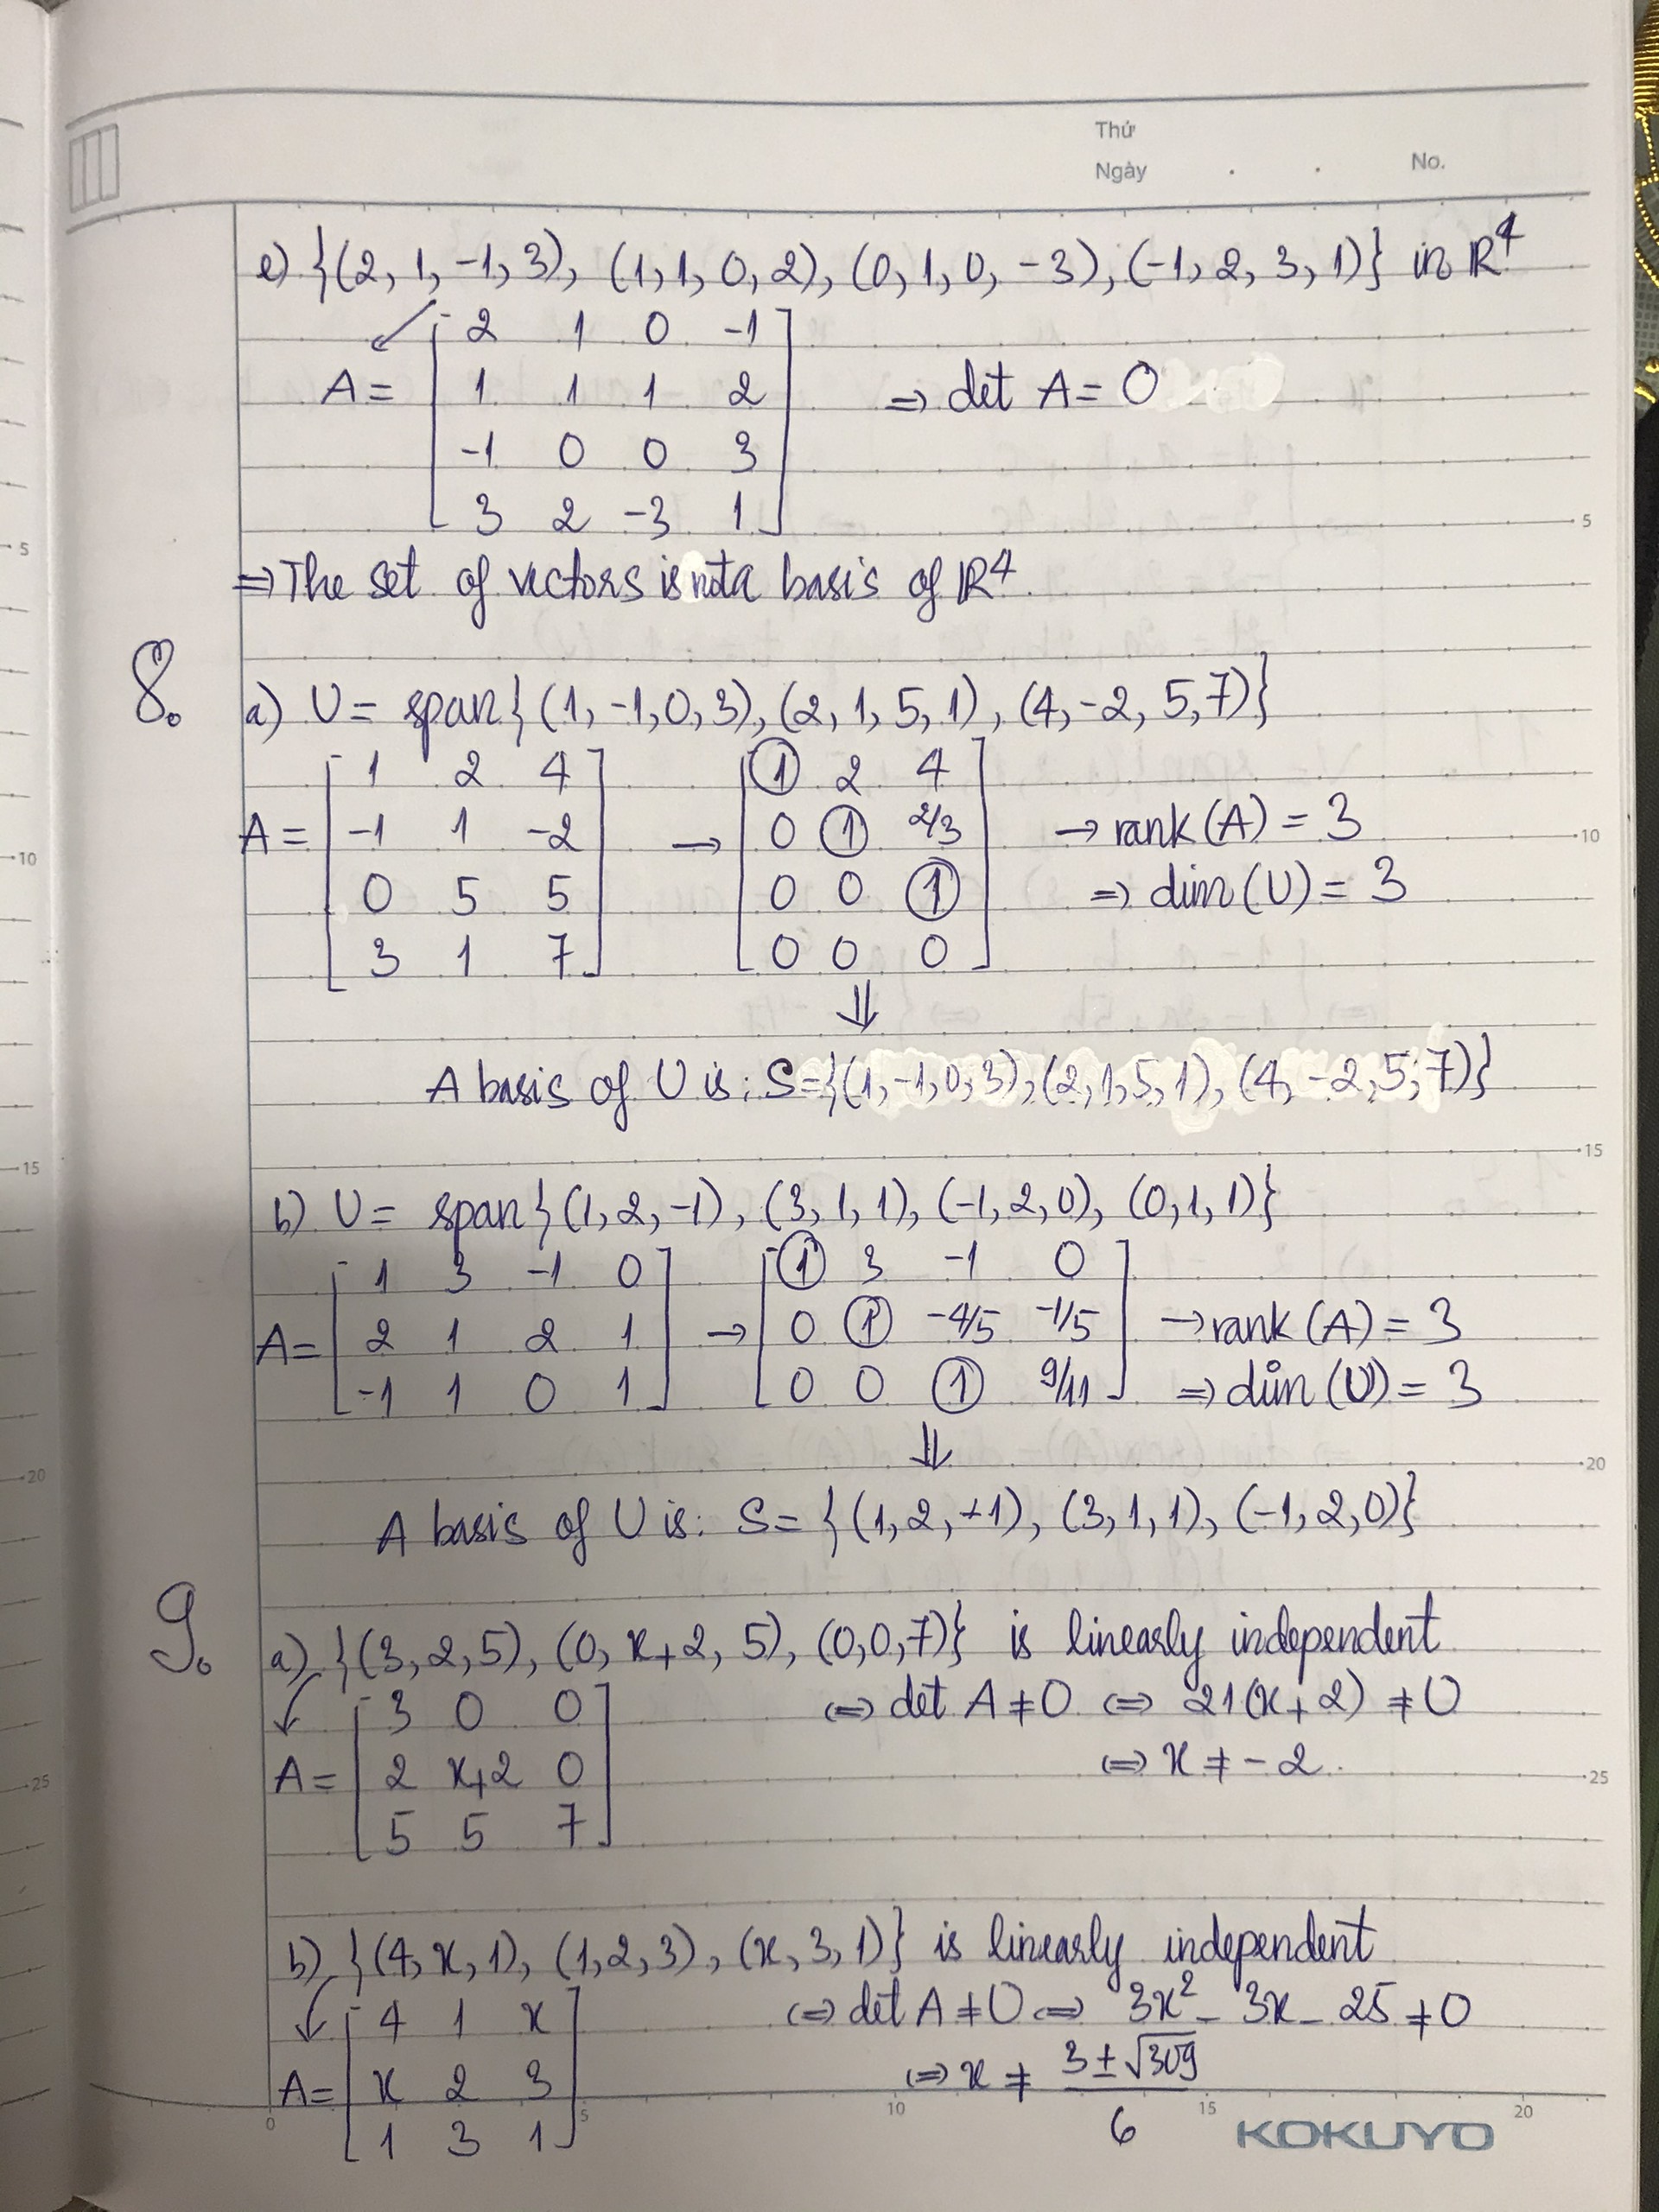 Thứ
Ngày . . No.
e) {(2, 1, -1, 3), (1, 1, 0, 2), (0, 1, 0, -3), (-1, 2, 3, 1)} in ℝ⁴
A = [2 1 0 -1
1 1 1 2
-1 0 0 3
3 2 -3 1] ⇒ det A = 0
⇒ The set of vectors is not a basis of ℝ⁴.
8.
a) U = span{(1, -1, 0, 3), (2, 1, 5, 1), (4, -2, 5, 7)}
A = [1 2 4
-1 1 -2
0 5 5
3 1 7] → [1 2 4
0 1 2/3
0 0 1
0 0 0] → rank(A) = 3
⇒ dim(U) = 3
⇓
A basis of U is: S = {(1, -1, 0, 3), (2, 1, 5, 1), (4, -2, 5; 7)}
b) U = span{(1, 2, -1), (3, 1, 1), (-1, 2, 0), (0, 1, 1)}
A = [1 3 -1 0
2 1 2 1
-1 1 0 1] → [1 3 -1 0
0 1 -4/5 -1/5
0 0 1 9/11] → rank(A) = 3
⇒ dim(U) = 3
⇓
A basis of U is: S = {(1, 2, -1), (3, 1, 1), (-1, 2, 0)}
9.
a) {(3, 2, 5), (0, x+2, 5), (0, 0, 7)} is linearly independent
A = [3 0 0
2 x+2 0
5 5 7] ⇔ det A ≠ 0 ⇔ 21(x+2) ≠ 0
⇔ x ≠ -2.
b) {(4, x, 1), (1, 2, 3), (x, 3, 1)} is linearly independent
A = [4 1 x
x 2 3
1 3 1] ⇔ det A ≠ 0 ⇔ 3x² - 3x - 25 ≠ 0
⇔ x ≠ (3 ± √309)/6
5
10
15
20
25
5
10
15
20
25
0 5 10 15 20
KOKUYO